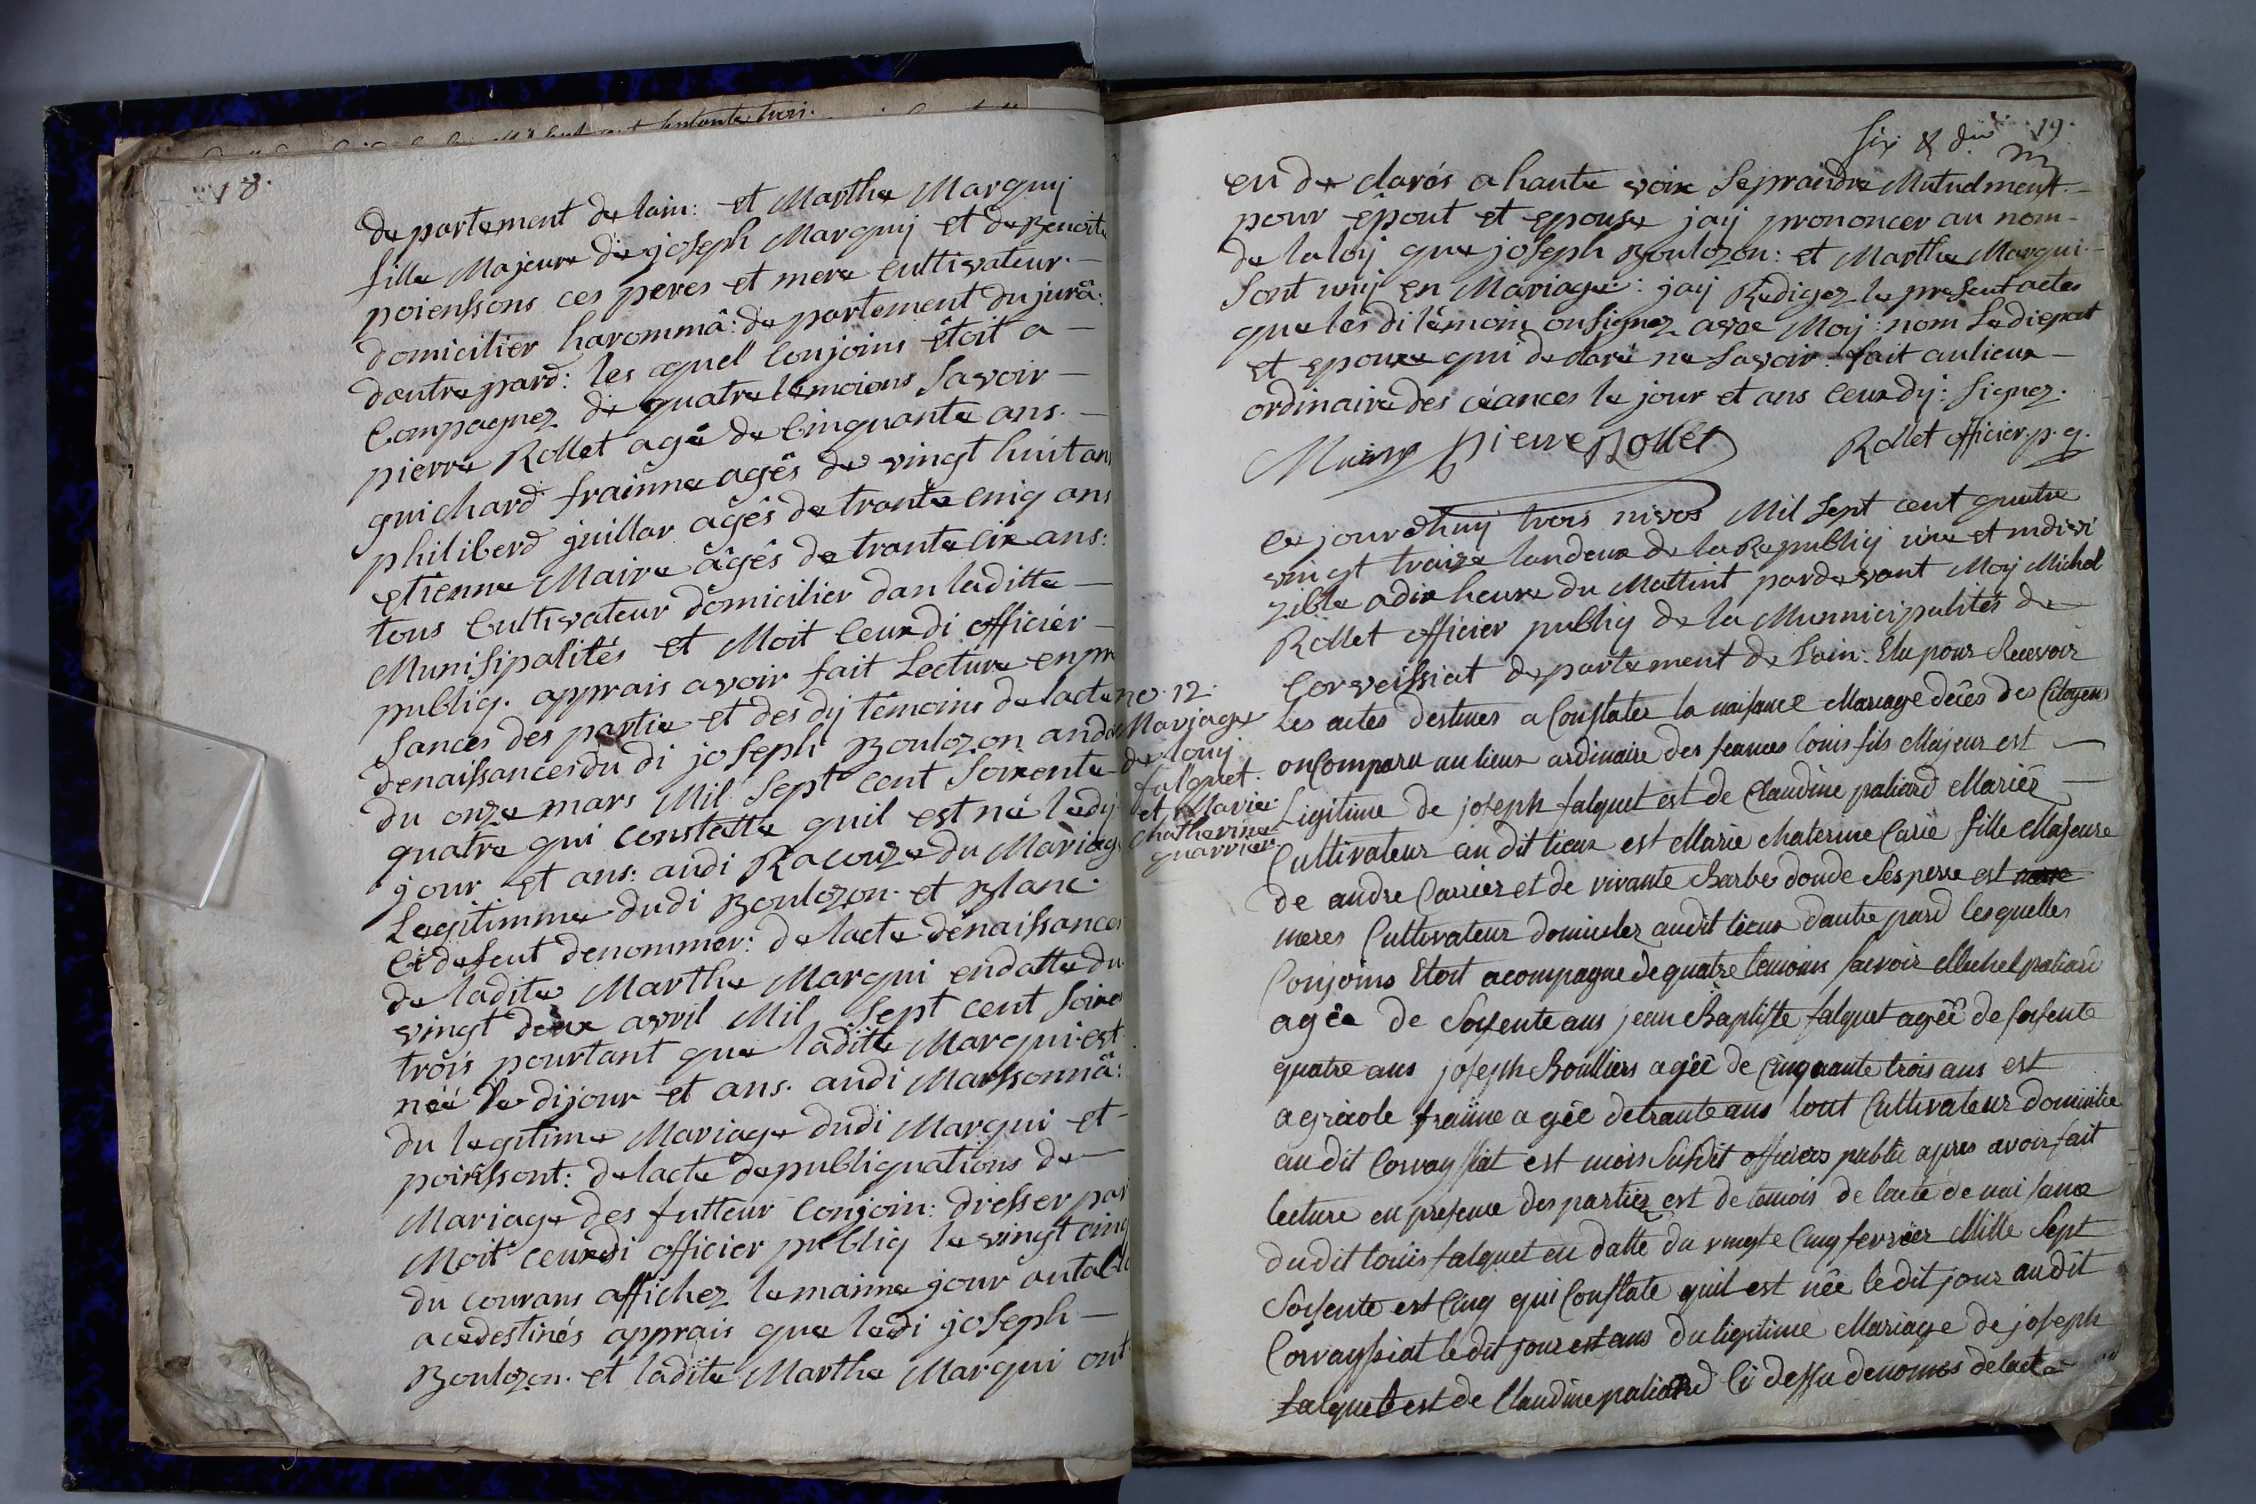 18.
departement de lain: et Marthe Marquij
fille Majeure de joseph Marquij et de Benoite
poienssons ces peres et mere cultivateur.
domicilierharommâ: departement du jurâ:
dautre pard: les cquel conjoins étoit a
compagnez de quatre témoins Savoir
pierre Rollet agé de cinquante ans.
guichard frainne agés de vingt huit ans
philiberd guillar âgés de trante cinq ans
etienne Maire âgés de trante cix ans:
tous cultivateur domicilier dan laditte
Munisipalités et Moit ceurdi officiér
publiq. apprais avoir fait Lecture enpre
sances des partie et des dij témoins de lacte
denaissances du di joseph Boulozon andatte
du onze mars Mil Sept cent Soixente
quatre qui constatte quil est né ledij
jour et ans: audi Racouze du Mariage
Legitimme dudi Boulozon. et Blanc.
cideseut denommer: de lacte dénaissances
de ladite Marthe Marqui endatte du
vingt deux avril Mil Sept cent Soixe
trois pourtant que laditte Marqui est
néé le dijour et ans. audi Marssonnâ:
du legitime Mariage dudi Marqui et
poinssont: de lacte de publiquations de
Mariage des futteur Conjoin: dresser par
Moit ceurdi officier publiq le vingt cinq
du courans affichez le mainne jour autable
acedestinés apprais que ledi joseph
Boulozon. et ladite Marthe Marqui ont
Six & dix 19.
en declarés a haute voix Se praindre Mutuelment.
pour êpout et epouse jaij prononcer au nom
de la loij que joseph Boulozon: et Marthe Marqui
Sont unij en Mariage: jaij Rédigez le present actes
que les di témoin onsignez avec Moij: nom Ledi epout
et epouxe qui declare ne Savoir. fait aulieux
ordinaire des céances le jour et ans ceurdij: Signez.
Maire pierre Rollet Rollet officier. p. q.
ce jourdhuij trois nivos Mil Sept cent quatre
vingt traize landeux de la Republiq une et indivi
zible a dix heure du Mattint pardevant Moij Michel
Rollet officier publiq de la Munnicipalités de
Corveissiat departement de lain. Elu pour Recevoir
no. 12.
Mariage
de louij
falquet.
et Marie
Chatherine
quarrier
Les actes destines a Constater la naisance Mariage decês de Citoyens
on Comparu au lieux ordinaire des seances louis fils Majeur est
Ligitime de joseph falquet est de Claudine paliard Mariéz
Cultivateur au dit lieux est Marie Chaterine Carié fille Majeure
de andre Carriez et de vivante Barbe doude Ses pere est
meres Cultivateur domicilez audit lieux dautre pard lesquelles
Conjoins Etoit acompagne de quatre temoins savoir Michel paliard
agée de Soisente ans jean Baptiste falquet agéé de soisente
quatre ans joseph Boulliers agéé de Cinquante trois ans est
agricole fraiine agée detrante ans tout Cultivateur domicilie
au dit Corvayssiat est mois Susdit officiers public apres avoir fait
lecture en presence des partiez est de temois de lacte de naisance
du dit louis falquet en datte du vingte Cinq ferrier Mille Sept
Soisente est Cinq qui Constate quil est née le dit jour au dit
Corvayssiat ledit jour est ans du ligitime Mariage de joseph
falquet est de Claudine paliard Ci dessu denomes de lacte